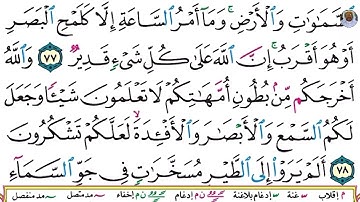 ٱلسَّمَٰوَٰتِ وَٱلْأَرْضِ ۚ وَمَآ أَمْرُ ٱلسَّاعَةِ إِلَّا كَلَمْحِ ٱلْبَصَرِ
أَوْ هُوَ أَقْرَبُ ۚ إِنَّ ٱللَّهَ عَلَىٰ كُلِّ شَىْءٍ قَدِيرٌ ٧٧ وَٱللَّهُ
أَخْرَجَكُم مِّنۢ بُطُونِ أُمَّهَٰتِكُمْ لَا تَعْلَمُونَ شَيْـًٔا وَجَعَلَ
لَكُمُ ٱلسَّمْعَ وَٱلْأَبْصَٰرَ وَٱلْأَفْـِٔدَةَ ۙ لَعَلَّكُمْ تَشْكُرُونَ
٧٨ أَلَمْ يَرَوْا۟ إِلَى ٱلطَّيْرِ مُسَخَّرَٰتٍ فِى جَوِّ ٱلسَّمَآءِ
إقلاب غنة إدغام بلاغنة إدغام إخفاء مد متصل مد منفصل